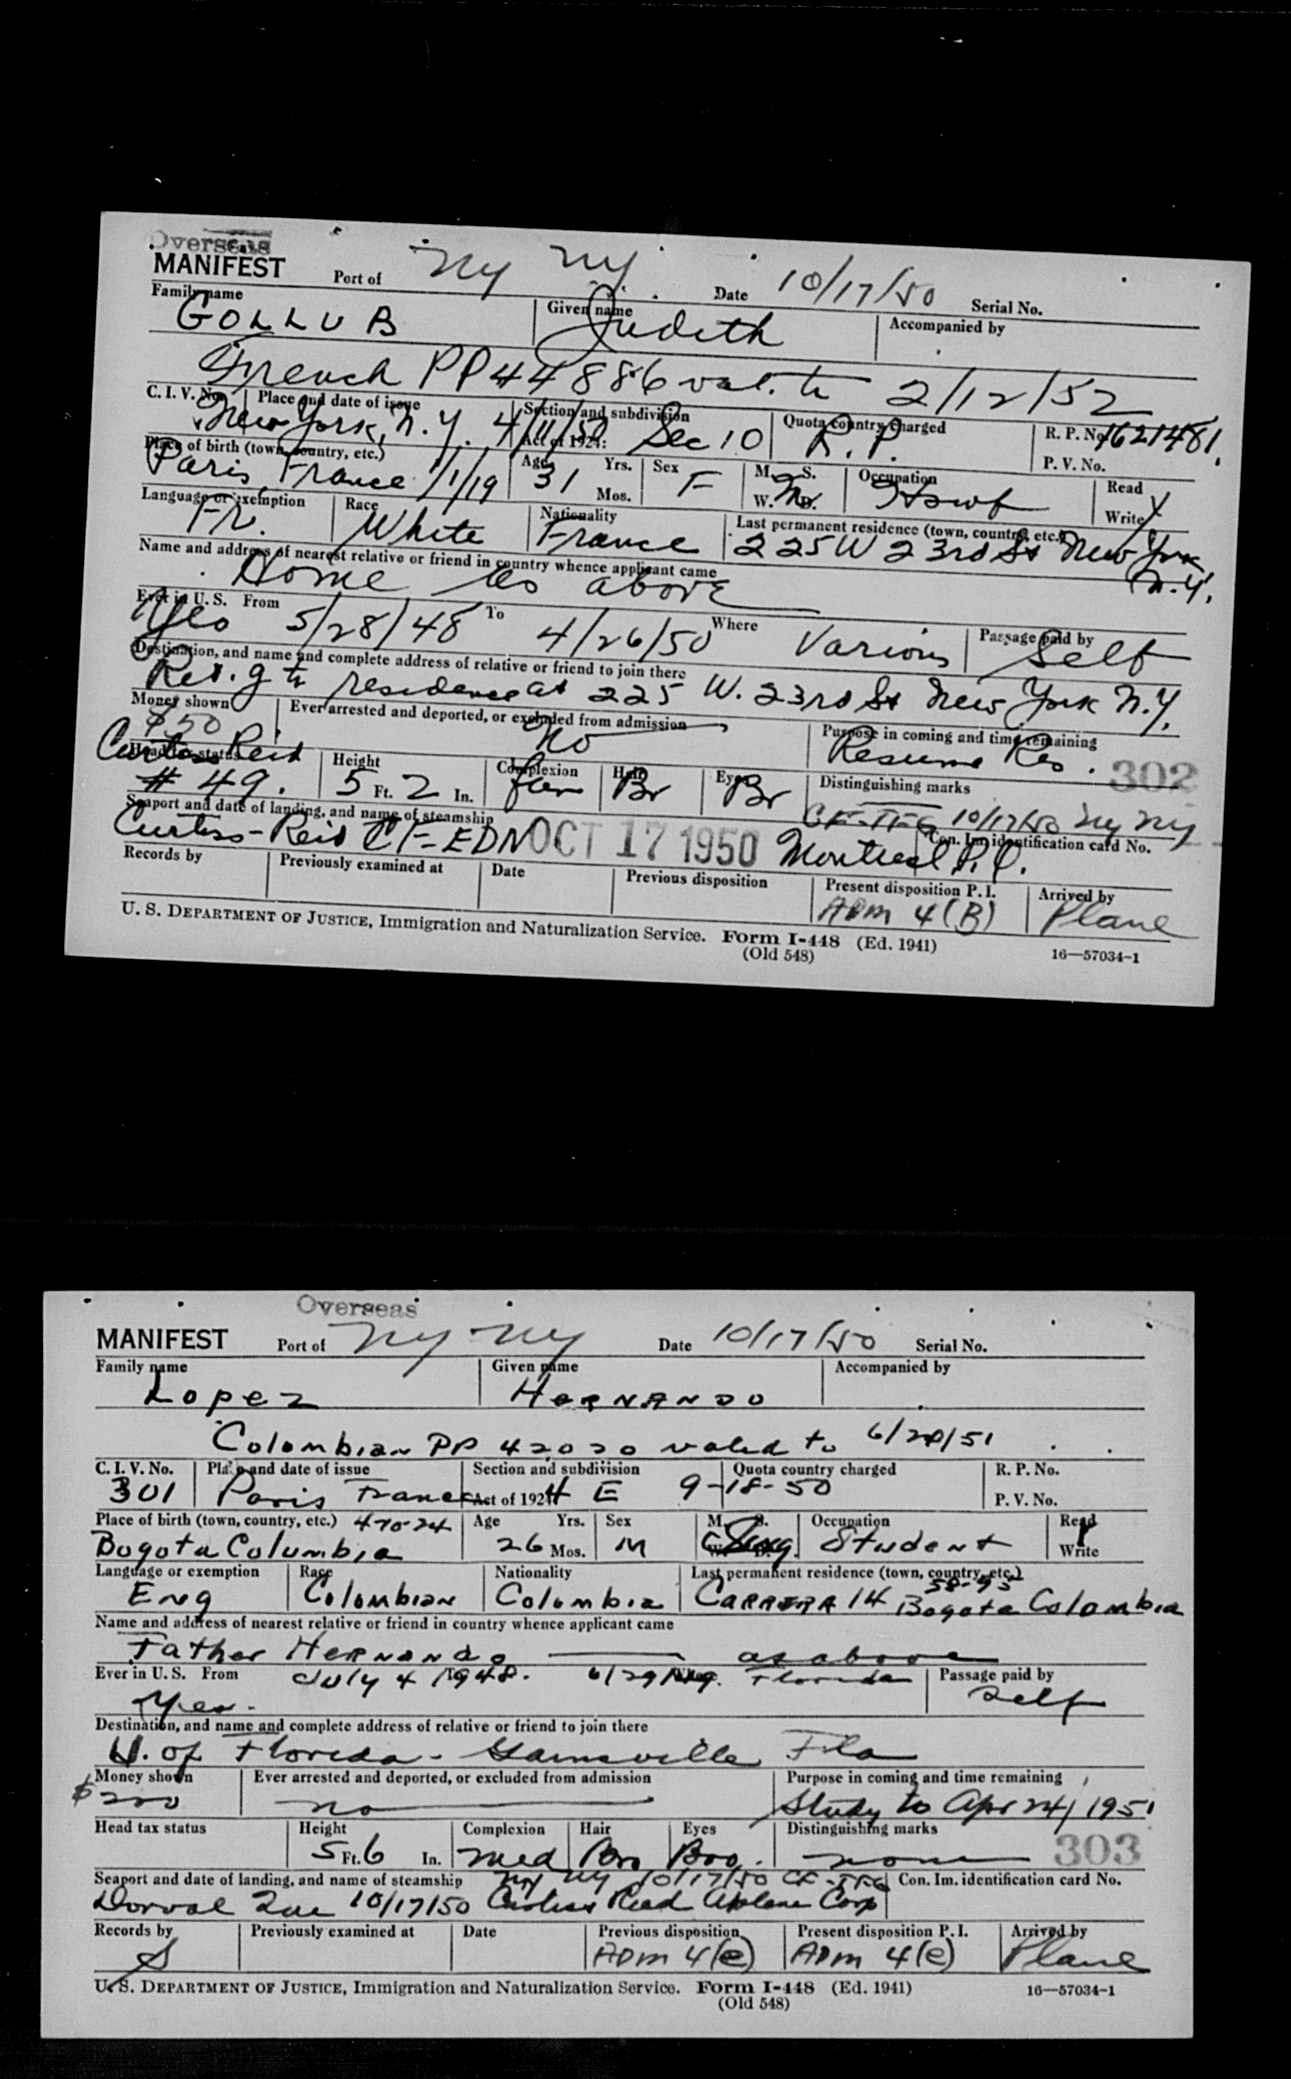 Overseas
MANIFEST Port of Ny Ny. Date 10/17/50 Serial No.
Family name Given name Accompanied by
GOLLUB Judith
French PP 44886 val. to 2/12/52
C. I. V. No. Place and date of issue Section and subdivision Quota country charged R. P. No. 1621481.
New York, N.Y. 4/11/50 Act of 1924: Sec 10 R.P. P. V. No.
Place of birth (town, country, etc.) Age Yrs. Sex M. S. Occupation Read
Paris, France 1/1/19 31 Mos. F W. M. D. Hswf Write
Language or exemption Race Nationality Last permanent residence (town, country, etc.)
Fr. White France 225 W 23rd St New York, N.Y.
Name and address of nearest relative or friend in country whence applicant came
Home as above
Ever in U. S. From To Where Passage paid by
Yes 5/28/48 4/26/50 Various Self
Destination, and name and complete address of relative or friend to join there
Ret. g to residence at 225 W. 23rd St New York N.Y.
Money shown Ever arrested and deported, or excluded from admission Purpose in coming and time remaining
$50 No Resume Res. 302
Head tax status Height Complexion Hair Eyes Distinguishing marks
Curtiss Reid # 49. 5 Ft. 2 In. Br Br
CF-TFG 10/17/50 Ny Ny
Seaport and date of landing, and name of steamship Con. Im. identification card No.
Curtiss-Reid CF-EDN OCT 17 1950 Montreal P.Q.
Records by Previously examined at Date Previous disposition Present disposition P. I. Arrived by
ADM 4(B) Plane
U. S. DEPARTMENT OF JUSTICE, Immigration and Naturalization Service. Form I-448 (Ed. 1941)
(Old 548) 16—57034-1
Overseas
MANIFEST Port of Ny Ny Date 10/17/50 Serial No.
Family name Given name Accompanied by
Lopez HERNANDO
Colombian PP 42020 valid to 6/28/51
C. I. V. No. Place and date of issue Section and subdivision Quota country charged R. P. No.
301 Paris France Act of 1924: 4 E 9-18-50 P. V. No.
Place of birth (town, country, etc.) 4-10-24 Age Yrs. Sex M. S. Occupation Read
Bogota Columbia 26 Mos. M Sing Student Write
Language or exemption Race Nationality Last permanent residence (town, country, etc.)
Eng Colombian Colombia CARRERA 14 58-95 Bogota Colombia
Name and address of nearest relative or friend in country whence applicant came
Father HERNANDO as above
Ever in U. S. From July 4 1948. 6/29/49. Florida Passage paid by
Yes. Self
Destination, and name and complete address of relative or friend to join there
U. of Florida - Gainsville Fla
Money shown Ever arrested and deported, or excluded from admission Purpose in coming and time remaining
$200 no Study to Apr 24, 1951
Head tax status Height Complexion Hair Eyes Distinguishing marks
5 Ft. 6 In. Med Bro Bro. none 303
Seaport and date of landing, and name of steamship Ny Ny 10/17/50 CF-TFG Con. Im. identification card No.
Dorval Que 10/17/50 Curtiss Reid Corp
Records by Previously examined at Date Previous disposition Present disposition P. I. Arrived by
S ADM 4(e) ADM 4(e) Plane
U. S. DEPARTMENT OF JUSTICE, Immigration and Naturalization Service. Form I-448 (Ed. 1941)
(Old 548) 16—57034-1